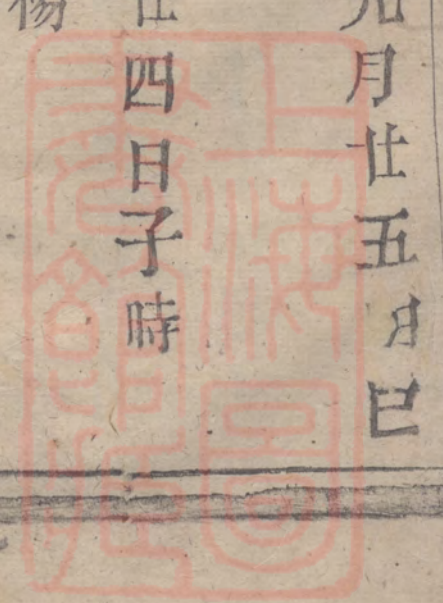 月廿五日巳
四日子時
上海圖書館藏